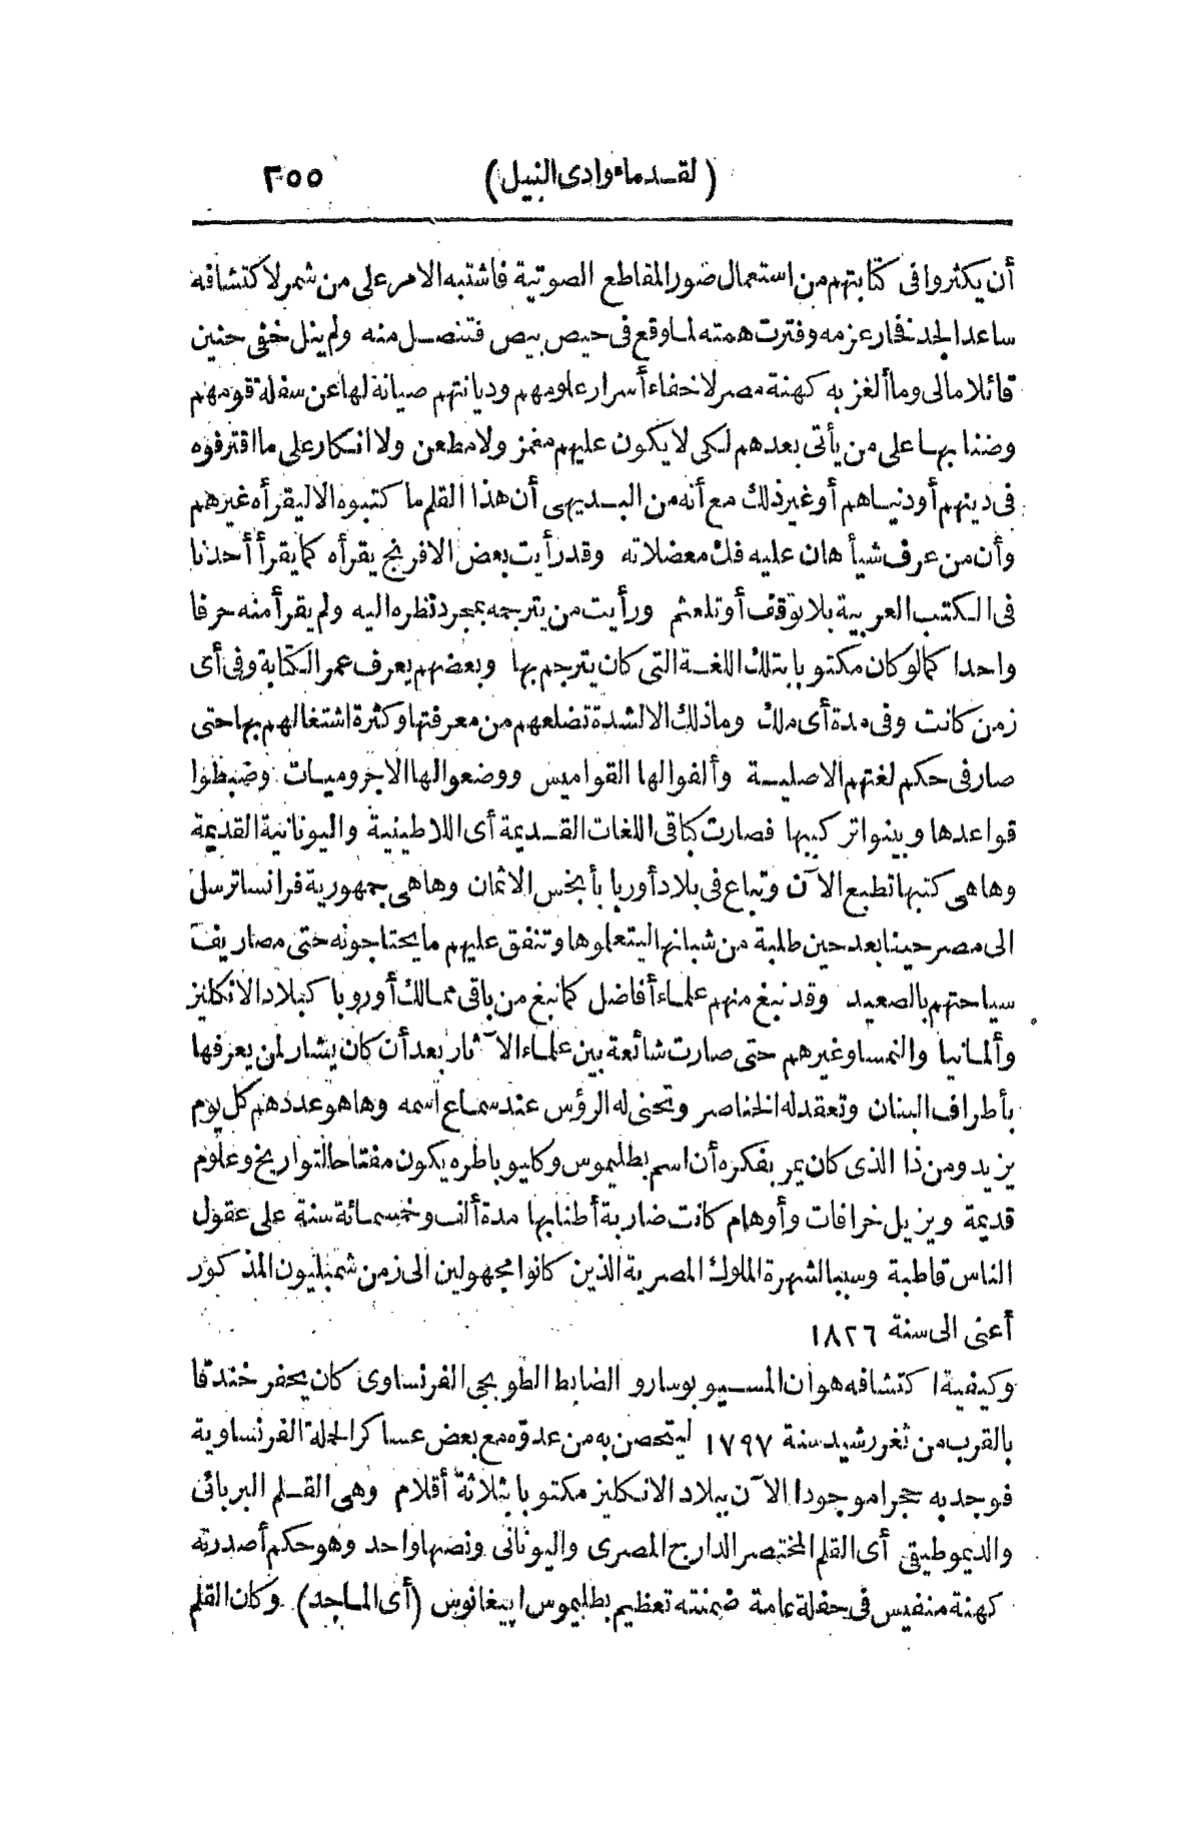 (لقدماء وادى النيل) ٢٥٥
أن يكثروا فى كتابتهم من استعمال صور المقاطع الصوتية فاشتبه الامر على من شمر لاكتشافه
ساعد الجد فخار عزمه وفترت همته لما وقع فى حيص بيص فتنصل منه ولم ينل خفى حنين
قائلا مالى وما ألغز به كهنة مصر لاخفاء أسرار علومهم وديانتهم صيانة لها عن سفلة قومهم
وضنا بها على من يأتى بعدهم لكى لا يكون عليهم مغمز ولا مطعن ولا انكار على ما اقترفوه
فى دينهم أو دنياهم أو غير ذلك مع أنه من البديهى أن هذا القلم ما كتبوه الا ليقرأه غيرهم
وأن من عرف شيأ هان عليه فك معضلاته وقد رأيت بعض الافرنج يقرأه كما يقرأ أحدنا
فى الكتب العربية بلا توقف أو تلعثم ورأيت من يترجمه بمجرد نظره اليه ولم يقرأ منه حرفا
واحدا كما لو كان مكتوبا بتلك اللغة التى كان يترجم بها وبعضهم يعرف عمر الكتابة وفى أى
زمن كانت وفى مدة أى ملك وما ذلك الا لشدة تضلعهم من معرفتها وكثرة اشتغالهم بها حتى
صار فى حكم لغتهم الاصلية وألفوا لها القواميس ووضعوا لها الاجروميات وضبطوا
قواعدها وبينوا تركيبها فصارت كباقى اللغات القديمة أى اللاطينية واليونانية القديمة
وها هى كتبها تطبع الآن وتباع فى بلاد أوربا بأبخس الاثمان وها هى جمهورية فرانسا ترسل
الى مصر حينا بعد حين طلبة من شبانها ليتعلموها وتنفق عليهم ما يحتاجونه حتى مصاريف
سياحتهم بالصعيد وقد نبغ منهم علماء أفاضل كما نبغ من باقى ممالك أوروبا كبلاد الانكليز
وألمانيا والنمسا وغيرهم حتى صارت شائعة بين علماء الآثار بعد أن كان يشار لمن يعرفها
بأطراف البنان وتعقد له الخناصر وتحنى له الرؤس عند سماع اسمه وها هو عددهم كل يوم
يزيد ومن ذا الذى كان يمر بفكره أن اسم بطليموس وكليوباطره يكون مفتاحا لتواريخ وعلوم
قديمة ويزيل خرافات وأوهام كانت ضاربة أطنابها مدة ألف وخمسمائة سنة على عقول
الناس قاطبة وسببا لشهرة الملوك المصرية الذين كانوا مجهولين الى زمن شمبليون المذكور
أعنى الى سنة ١٨٢٦
وكيفية اكتشافه هو ان المسيو بوسارو الضابط الطوبجى الفرنساوى كان يحفر خندقا
بالقرب من ثغر رشيد سنة ١٧٩٧ ليتحصن به من عدوه مع بعض عساكر الحملة الفرنساوية
فوجد به حجرا موجودا الآن ببلاد الانكليز مكتوبا بثلاثة أقلام وهى القلم البربائى
والديموطيقى أى القلم المختصر الدارج المصرى واليونانى ونصها واحد وهو حكم أصدرته
كهنة منفيس فى حفلة عامة ضمنته تعظيم بطليموس ابيغانوس (أى الماجد) وكان القلم